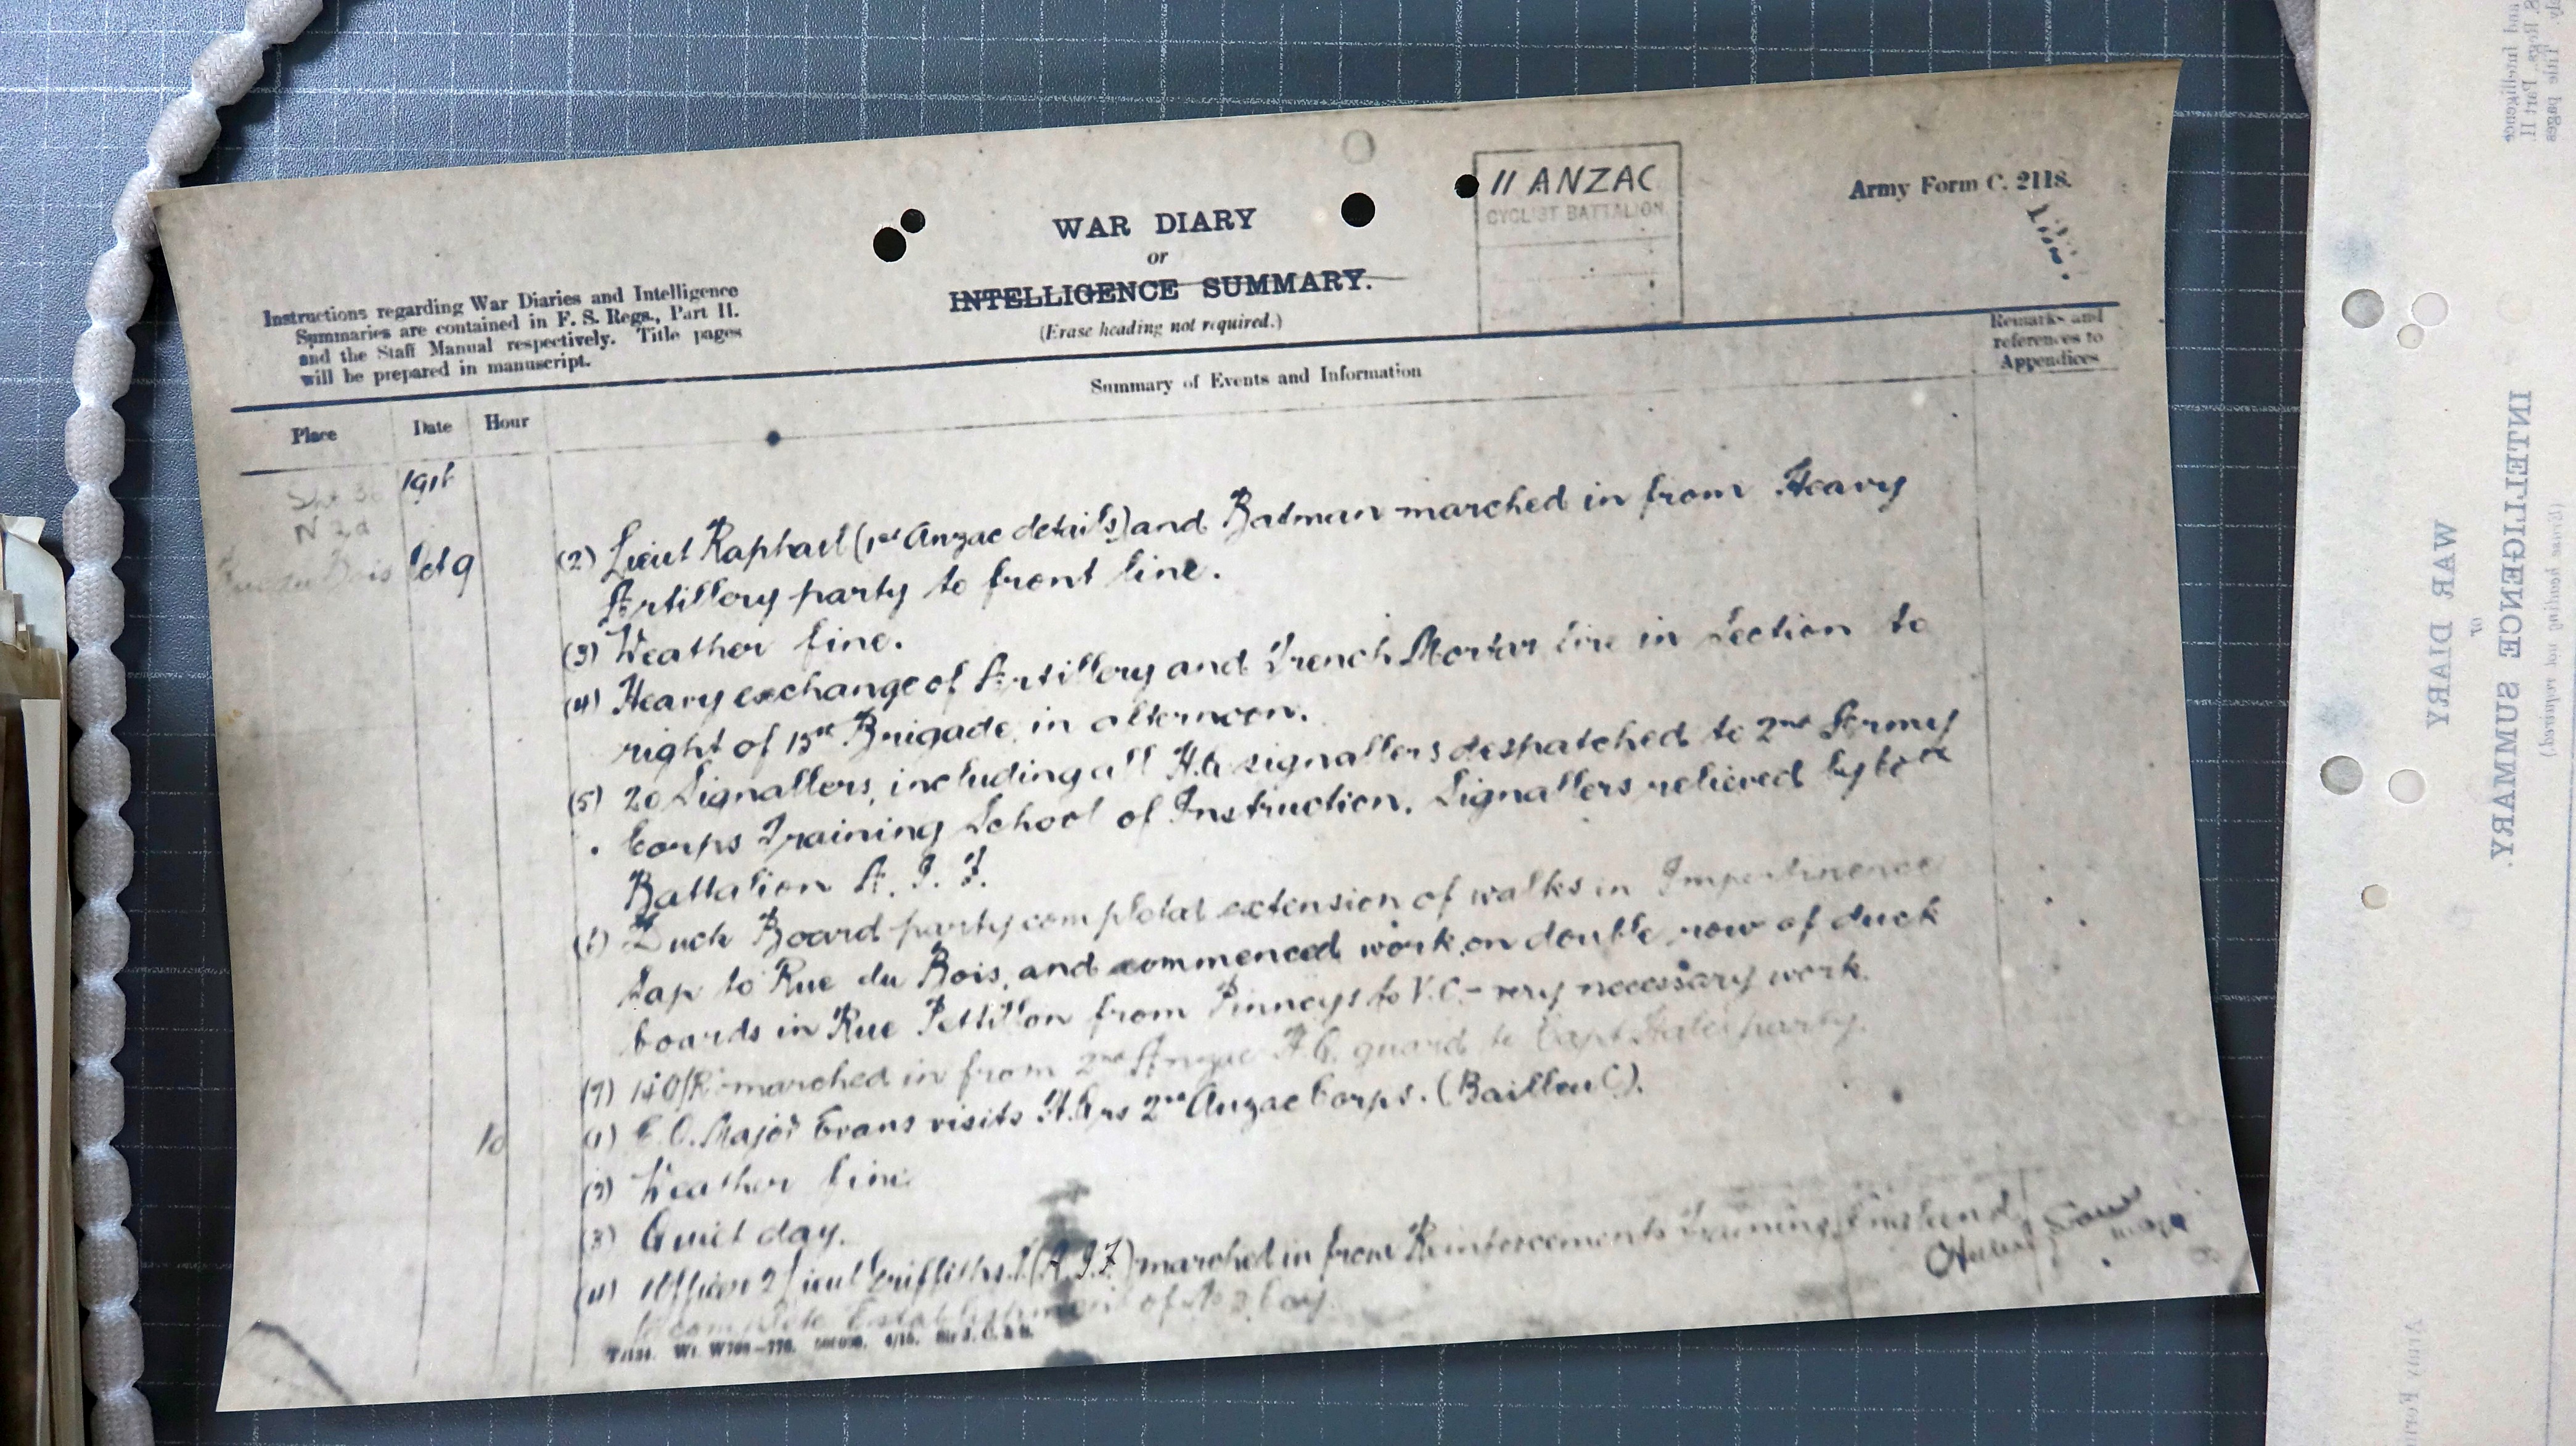 11 ANZAC
CYCLIST BATTALION
Army Form C. 2118.
WAR DIARY
or
INTELLIGENCE SUMMARY.
(Erase heading not required.)
Instructions regarding War Diaries and Intelligence
Summaries are contained in F. S. Regs., Part II.
and the Staff Manual respectively. Title pages
will be prepared in manuscript.
Remarks and
references to
Appendices
Summary of Events and Information
Place Date Hour
1916
N 3d
Rue du Bois Oct 9
(2) Lieut Raphael (1st Anzac details) and Batman marched in from Heavy
Artillery party to front line.
(3) Weather fine.
(4) Heavy exchange of Artillery and Trench Mortar fire in Section to
right of 15th Brigade, in afternoon.
(5) 20 Signallers, including all H.Q. signallers despatched to 2nd Army
Corps Training School of Instruction. Signallers relieved by
Battalion A. I. F.
(6) Duck Board party completed extension of walks in Impertinence
Sap to Rue du Bois, and commenced work on double row of duck
boards in Rue Petillon from Pinneys to V.C. - very necessary work.
(7) 14 O/R marched in from 2nd Anzac H.Q. guard to Capt party.
10 (1) C.O. Major Evans visits H.Qrs 2nd Anzac Corps. (Bailleul).
(2) Weather fine.
(3) Quiet day.
(4) 1 Officer 2/Lieut Griffiths (A.I.F.) marched in from Reinforcements Training, England,
to complete Establishment of No 3 Coy.
WAR DIARY
or
INTELLIGENCE SUMMARY.
(Erase heading not required.)